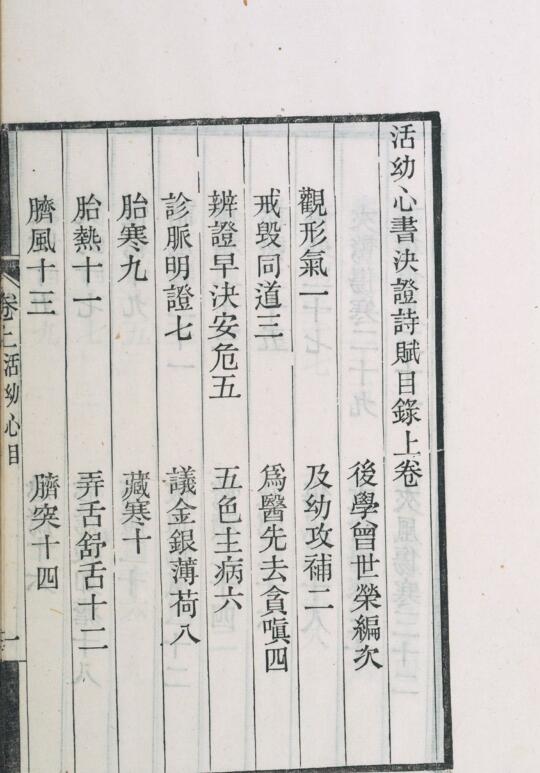 活幼心書決證詩賦目錄上卷
後學曾世榮編次
觀形氣一
及幼攻補二
戒毀同道三
為醫先去貪嗔四
辨證早決安危五
五色主病六
診脈明證七
議金銀薄荷八
胎寒九
藏寒十
胎熱十一
弄舌舒舌十二
臍風十三
臍突十四
卷上活幼心目
一